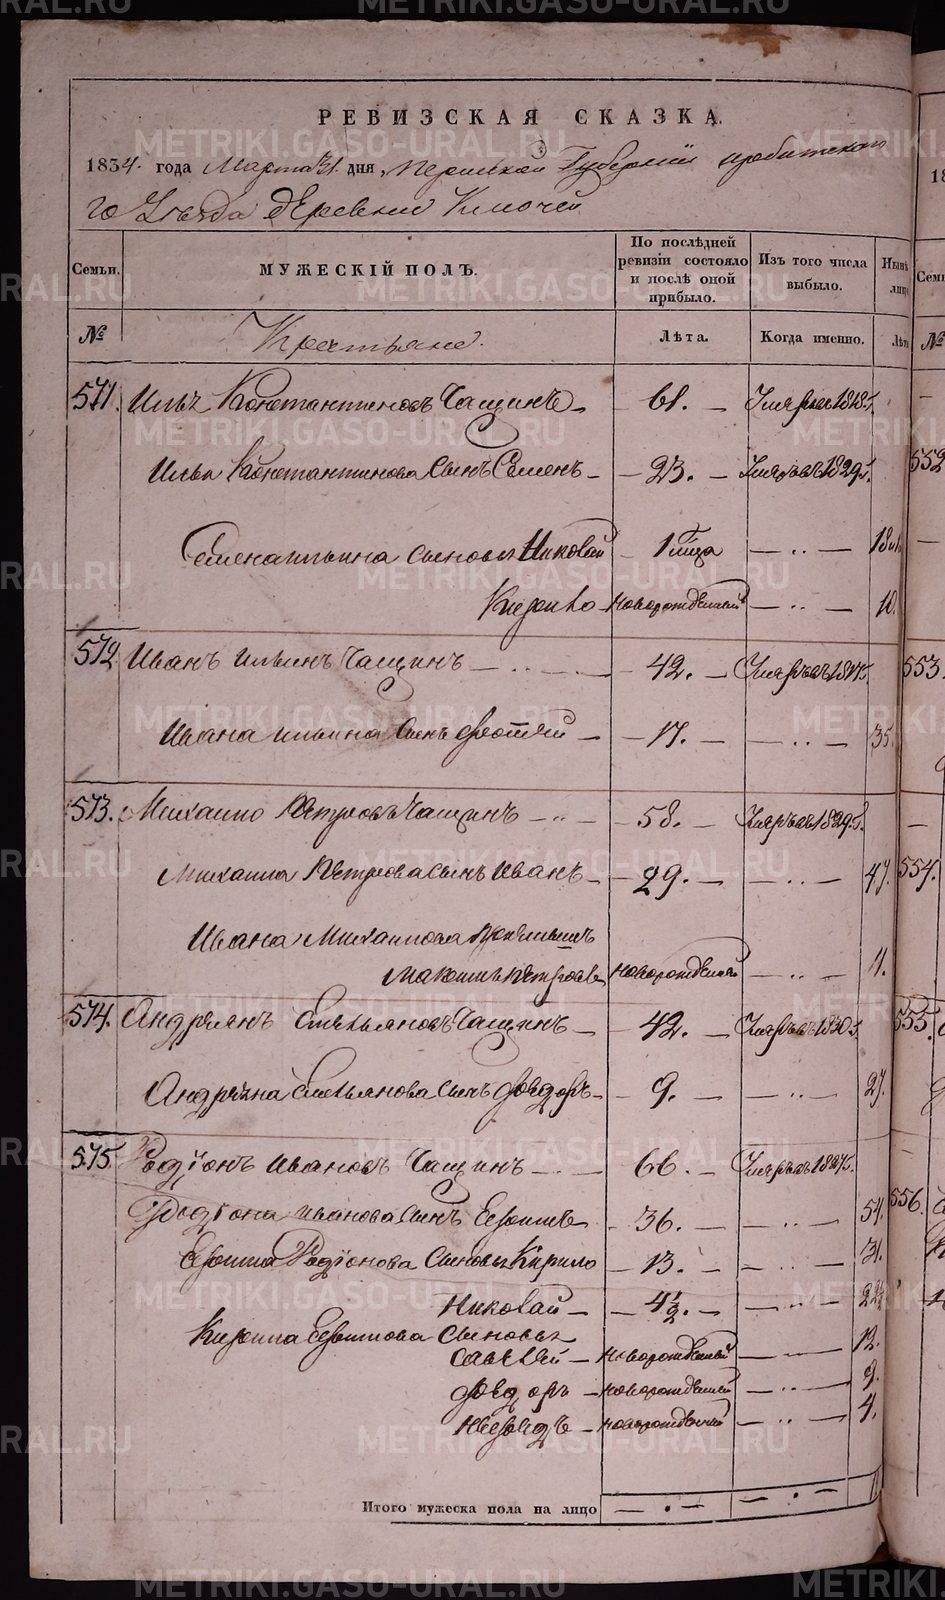 РЕВИЗСКАЯ СКАЗКА.
1834. года Марта 31. дня, Пермской Губернiи ирбитскаго
го Уезда деревни Ключей
Семьи. МУЖЕСКIЙ ПОЛЪ. По послѣдней ревизiи состояло и послѣ оной прибыло. Изъ того числа выбыло. Нынѣ лицо
№ Крестьяне. Лѣта. Когда именно. Лѣта
571. Илья Константиновъ Чащинъ 61. Умеръ въ 1818г.
Ильи Константинова Сынъ Семенъ 23. Умеръ въ 1829г.
Семена ильина сыновья Николай 1 18
Кирило новорожденный 10.
572 Иванъ ильинъ Чащинъ 42. Умеръ въ 1817г.
Ивана ильина Сынъ Фотѣй 17. 35.
573. Михаило Петровъ Чащинъ 58. Умеръ въ 1829г.
Михаила Петрова сынъ Иванъ 29. 47.
Ивана Михаилова
новорожденный 11.
574. Андреянъ Емельяновъ Чащинъ 42. Умеръ въ 1830г.
Андреяна Емельянова сынъ Федоръ 9. 27.
575. Родiонъ Ивановъ Чащинъ 66. Умеръ въ 1827г.
Родiона иванова Сынъ Ефимъ 36. 54.
Ефима Родiонова Сыновья Кирило 13. 31.
Николай 4½. 22½
Кирила Ефимова Сыновья
Савѣлей новорожденный 12.
Федоръ новорожденный 9.
новорожденный 4.
Итого мужеска пола на лицо
552
553.
554.
555.
556.
METRIKI.GASO-URAL.RU